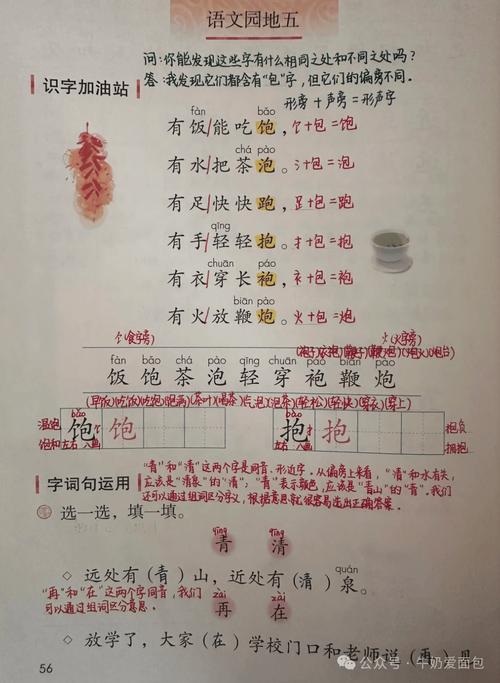 语文园地五
问:你能发现这些字有什么相同之处和不同之处吗?
答:我发现它们都含有"包"字,但它们的偏旁不同。
形旁+声旁=形声字
识字加油站
fàn bǎo
有饭/能吃饱,饣+包=饱
chá pào
有水/把茶泡。氵+包=泡
有足/快快跑,⻊+包=跑
qīng
有手/轻轻抱。扌+包=抱
chuān páo
有衣/穿长袍,衤+包=袍
biān pào
有火/放鞭炮。火+包=炮
饣(食字旁) 火(火字旁)
(袍子)(衣袍)(鞭子)(鞭炮)(火炮)(炮台)
fàn bǎo chá pào qīng chuān páo biān pào
饭饱茶泡轻穿袍鞭炮
(早饭)(吃饭)(吃饱)(饱满)(茶叶)(喝茶)(气泡)(泡茶)(轻松)(轻快)(穿衣)(穿上)
bǎo bào
温饱 饱 饱 抱 抱 抱负
饱和 左右 八画 左右 八画 拥抱
"青"和"清"这两个字是同音、形近字。从偏旁上来看,"清"和水有关,
应该是"清泉"的"清";"青"表示颜色,应该是"青山"的"青"。我们
还可以通过组词区分字义,根据意思就很容易选出正确答案。
字词句运用
选一选,填一填。
qīng qīng
青 清
quán
◇ 远处有(青)山,近处有(清)泉。
"再"和"在"这两个字同音,我们
可以通过组词区分意思。
zài zài
再 在
◇ 放学了,大家(在)学校门口和老师说(再)见
56
公众号·牛奶爱面包